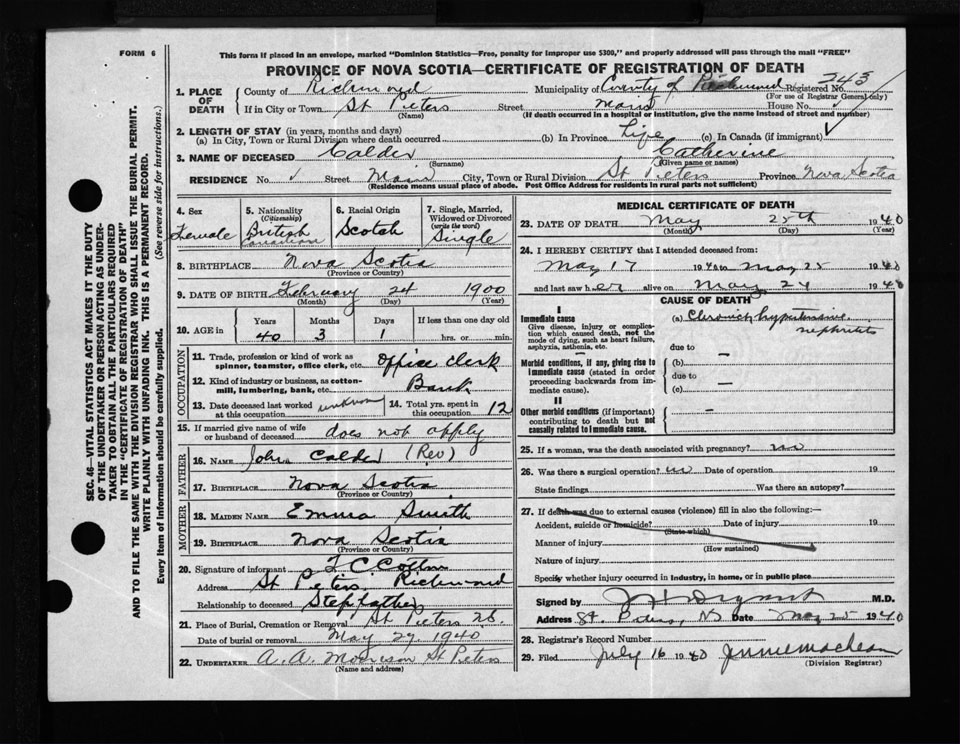 FORM 6
This form if placed in an envelope, marked "Dominion Statistics—Free, penalty for improper use $300," and properly addressed will pass through the mail "FREE"
PROVINCE OF NOVA SCOTIA—CERTIFICATE OF REGISTRATION OF DEATH
1. PLACE OF DEATH County of Richmond Municipality of County of Richmond Registered No. 243
(For use of Registrar General only)
If in City or Town St Peters Street Main House No.
(Name) (If death occurred in a hospital or institution, give the name instead of street and number)
2. LENGTH OF STAY (in years, months and days)
(a) In City, Town or Rural Division where death occurred (b) In Province Life (c) In Canada (if immigrant) ✓
3. NAME OF DECEASED Calder Catherine
(Surname) (Given name or names)
RESIDENCE No. ✓ Street Main City, Town or Rural Division St Peters Province Nova Scotia
(Residence means usual place of abode. Post Office Address for residents in rural parts not sufficient)
4. Sex Female
5. Nationality (Citizenship) British Canadian
6. Racial Origin Scotch
7. Single, Married, Widowed or Divorced (write the word) Single
8. BIRTHPLACE Nova Scotia
(Province or Country)
9. DATE OF BIRTH February 24 1900
(Month) (Day) (Year)
10. AGE in Years Months Days If less than one day old
40 3 1 hrs. or min.
OCCUPATION
11. Trade, profession or kind of work as spinner, teamster, office clerk, etc. Office Clerk
12. Kind of industry or business, as cotton-mill, lumbering, bank, etc. Bank
13. Date deceased last worked at this occupation unknown
14. Total yrs. spent in this occupation 12
15. If married give name of wife or husband of deceased does not apply
FATHER
16. NAME John Calder (Rev)
17. BIRTHPLACE Nova Scotia
(Province or Country)
MOTHER
18. MAIDEN NAME Emma Smith
19. BIRTHPLACE Nova Scotia
(Province or Country)
20. Signature of informant
Address St Peters Richmond
Relationship to deceased Stepfather
21. Place of Burial, Cremation or Removal St Peters N.S.
Date of burial or removal May 27 1940
22. UNDERTAKER A. A. Morrison St Peters
(Name and address)
MEDICAL CERTIFICATE OF DEATH
23. DATE OF DEATH May 25th 1940
(Month) (Day) (Year)
24. I HEREBY CERTIFY that I attended deceased from:
May 17 1940 to May 25 1940
and last saw her alive on May 24 1940
CAUSE OF DEATH
I
Immediate cause
Give disease, injury or complication which caused death, not the mode of dying, such as heart failure, asphyxia, asthenia, etc.
(a) Chronic hypertensive nephritis
due to —
Morbid conditions, if any, giving rise to immediate cause (stated in order proceeding backwards from immediate cause).
(b)
due to —
(c)
II
Other morbid conditions (if important) contributing to death but not causally related to immediate cause. —
25. If a woman, was the death associated with pregnancy? no
26. Was there a surgical operation? no Date of operation 19
State findings Was there an autopsy?
27. If death was due to external causes (violence) fill in also the following:—
Accident, suicide or homicide? Date of injury 19
(State which)
Manner of injury
(How sustained)
Nature of injury
Specify whether injury occurred in industry, in home, or in public place
Signed by M.D.
Address St. Peters, NS Date May 25 1940
28. Registrar's Record Number
29. Filed July 16 1940
(Division Registrar)
SEC. 46—VITAL STATISTICS ACT MAKES IT THE DUTY
OF THE UNDERTAKER OR PERSON ACTING AS UNDER-
TAKER TO OBTAIN ALL THE PARTICULARS REQUIRED
IN THE "CERTIFICATE OF REGISTRATION OF DEATH"
AND TO FILE THE SAME WITH THE DIVISION REGISTRAR WHO SHALL ISSUE THE BURIAL PERMIT.
WRITE PLAINLY WITH UNFADING INK. THIS IS A PERMANENT RECORD.
Every item of information should be carefully supplied. (See reverse side for instructions.)